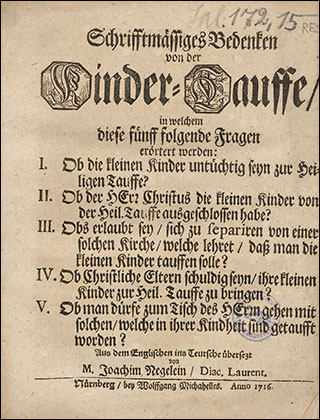 Sal. 172, 15
RES
Schrifftmässiges Bedenken
von der
Kinder-Tauffe/
in welchem
diese fünff folgende Fragen
erörtert werden:
I. Ob die kleinen Kinder untüchtig seyn zur Hei-
ligen Tauffe?
II. Ob der HErr Christus die kleinen Kinder von
der Heil. Tauffe ausgeschlossen habe?
III. Obs erlaubt sey/ sich zu separiren von einer
solchen Kirche/ welche lehret/ daß man die
kleinen Kinder tauffen solle?
IV. Ob Christliche Eltern schuldig seyn/ ihre kleinen
Kinder zur Heil. Tauffe zu bringen?
V. Ob man dürfe zum Tisch des HErrn gehen mit
solchen/ welche in ihrer Kindheit sind getaufft
worden?
Aus dem Englischen ins Teutsche übersezt
von
M. Joachim Negelein/ Diac. Laurent.
Nürnberg/ bey Wolffgang Michahelles. Anno 1716.